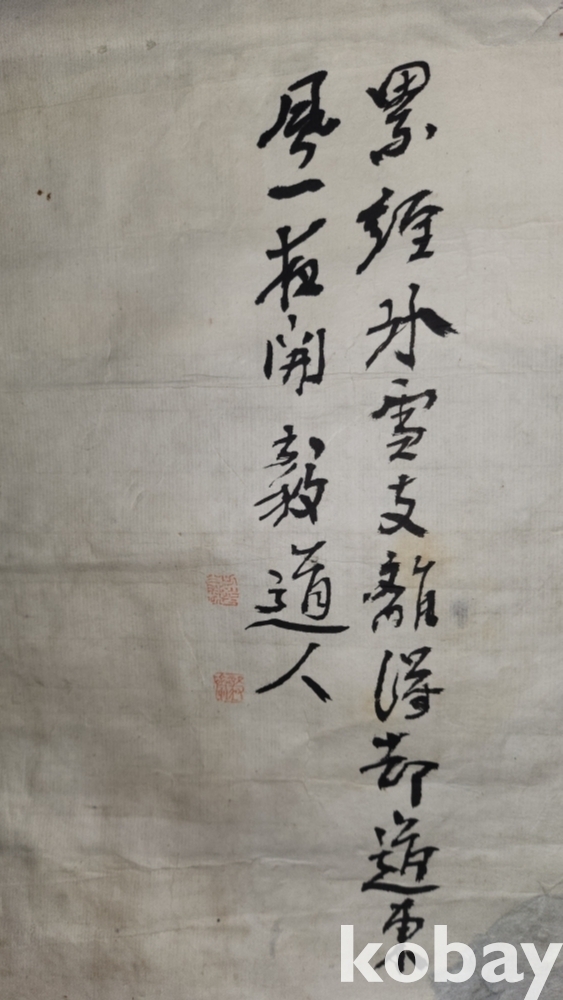 累經氷雪支離得却道東
風一夜開 毅道人
kobay